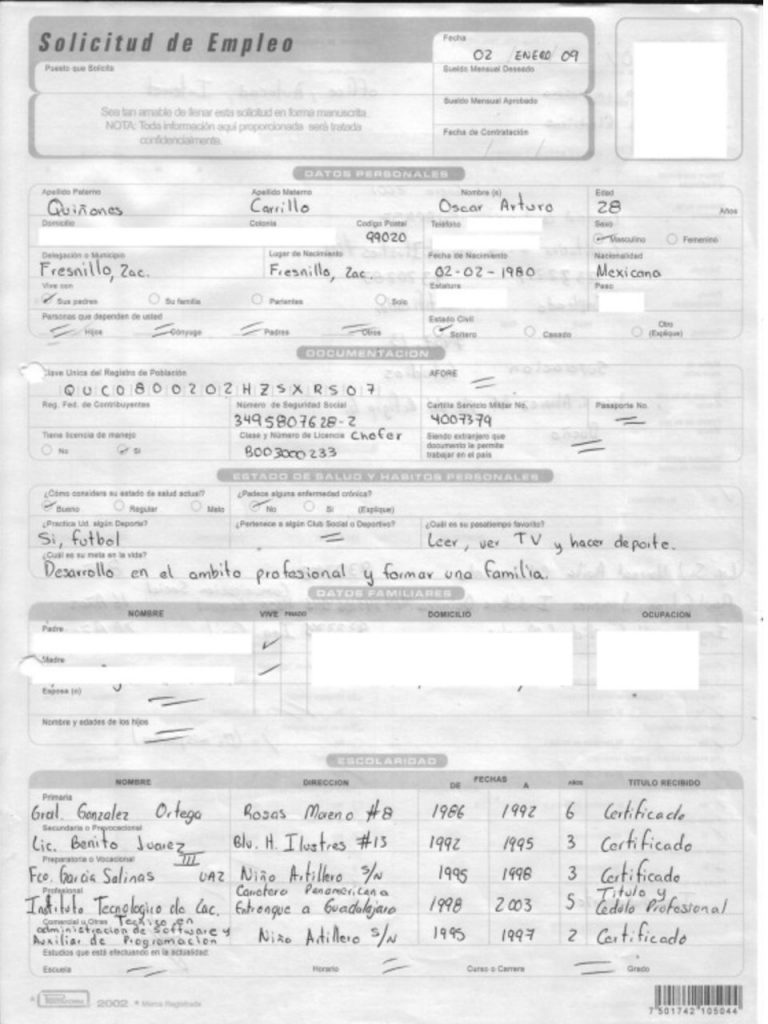 Solicitud de Empleo
Fecha
02 / ENERO / 09
Puesto que Solicita
Sueldo Mensual Deseado
Sea tan amable de llenar esta solicitud en forma manuscrita
NOTA: Toda información aquí proporcionada será tratada
confidencialmente.
Sueldo Mensual Aprobado
Fecha de Contratación
DATOS PERSONALES
Apellido Paterno Apellido Materno Nombre (s) Edad
Quiñones Carrillo Oscar Arturo 28 Años
Domicilio Colonia Codigo Postal Teléfono Sexo
99020 Masculino Femenino
Delegación o Municipio Lugar de Nacimiento Fecha de Nacimiento Nacionalidad
Fresnillo, Zac. Fresnillo, Zac. 02-02-1980 Mexicana
Vive con Estatura Peso
Sus padres Su familia Parientes Solo
Personas que dependen de usted Estado Civil Otro
Hijos Cónyuge Padres Otros Soltero Casado (Explique)
DOCUMENTACION
Clave Unica del Registro de Población AFORE
QUCO800202HZSXRS07
Reg. Fed. de Contribuyentes Número de Seguridad Social Cartilla Servicio Militar No. Pasaporte No.
3495807628-2 4007379
Tiene licencia de manejo Clase y Número de Licencia Chofer Siendo extranjero que
documento le permite
No Si B003000233 trabajar en el país
ESTADO DE SALUD Y HABITOS PERSONALES
¿Cómo considera su estado de salud actual? ¿Padece alguna enfermedad crónica?
Bueno Regular Malo No Si (Explique)
¿Practica Ud. algún Deporte? ¿Pertenece a algún Club Social o Deportivo? ¿Cuál es su pasatiempo favorito?
Si, futbol Leer, ver TV y hacer deporte.
¿Cuál es su meta en la vida?
Desarrollo en el ambito profesional y formar una familia.
DATOS FAMILIARES
NOMBRE VIVE FINADO DOMICILIO OCUPACION
Padre
Madre
Esposa (o)
Nombre y edades de los hijos
ESCOLARIDAD
NOMBRE DIRECCION FECHAS DE A AÑOS TITULO RECIBIDO
Primaria
Gral. Gonzalez Ortega Rosas Moreno #8 1986 1992 6 Certificado
Secundaria o Prevocacional
Lic. Benito Juarez Blv. H. Ilustres #13 1992 1995 3 Certificado
Preparatoria o Vocacional
Fco. Garcia Salinas III UAZ Niño Artillero S/N 1995 1998 3 Certificado
Profesional Carretera Panamericana Titulo y
Instituto Tecnologico de Zac. Entronque a Guadalajara 1998 2003 5 Cedula Profesional
Comercial u Otras Tecnico en
administracion de Software y
Auxiliar de Programacion Niño Artillero S/N 1995 1997 2 Certificado
Estudios que está efectuando en la actualidad:
Escuela Horario Curso o Carrera Grado
2002 * Marca Registrada
7 501742 105044